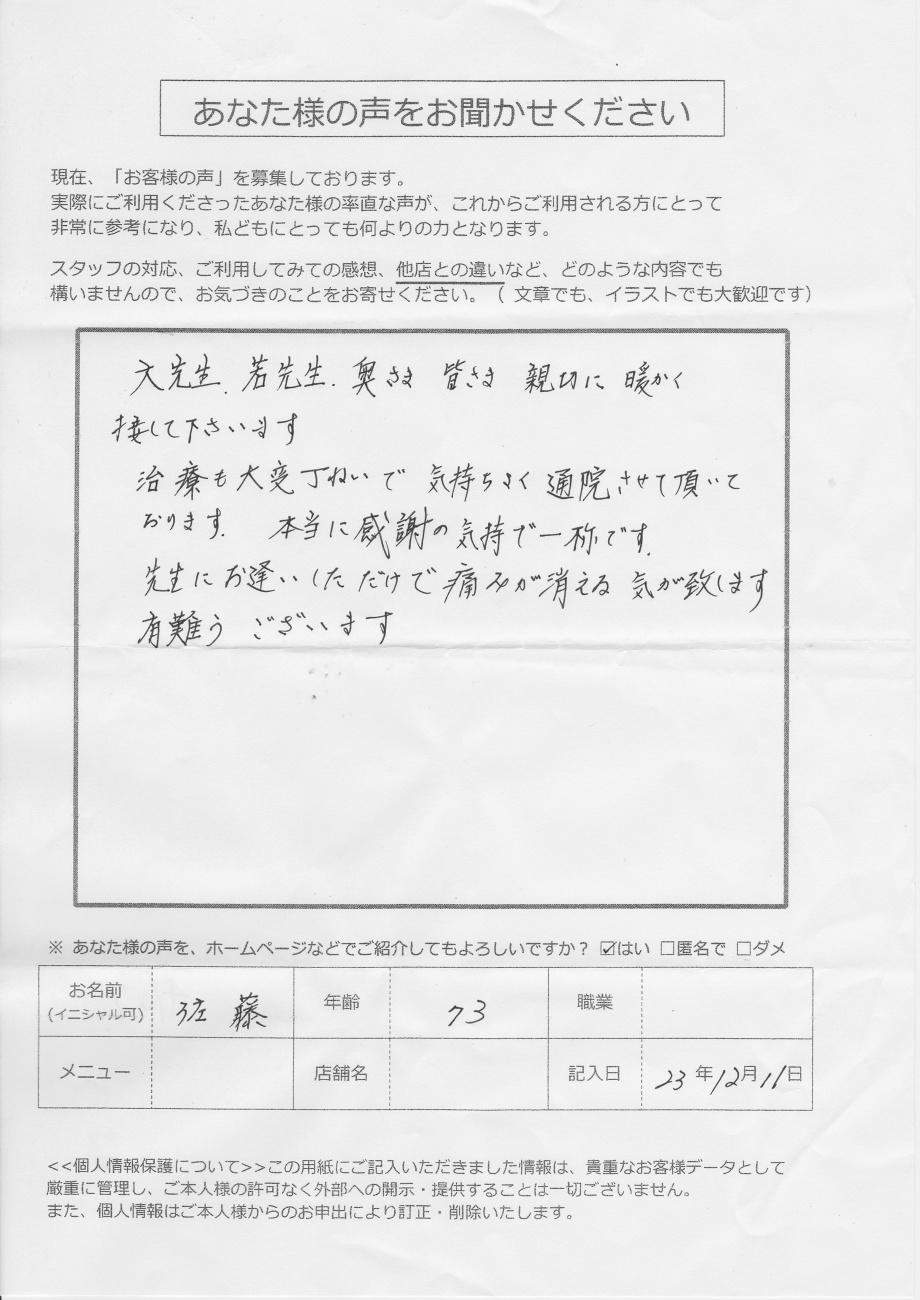 あなた様の声をお聞かせください
現在、「お客様の声」を募集しております。
実際にご利用くださったあなた様の率直な声が、これからご利用される方にとって
非常に参考になり、私どもにとっても何よりの力となります。
スタッフの対応、ご利用してみての感想、他店との違いなど、どのような内容でも
構いませんので、お気づきのことをお寄せください。（ 文章でも、イラストでも大歓迎です）
大先生、若先生、奥さま 皆さま 親切に 暖かく
接して下さいます
治療も大変丁ねいで 気持ちよく 通院させて頂いて
おります。 本当に感謝の気持で一杯です。
先生にお逢いしただけで痛みが消える 気が致します
有難う ございます
※ あなた様の声を、ホームページなどでご紹介してもよろしいですか？ ☑はい □匿名で □ダメ
お名前 (イニシャル可) 佐藤 年齢 73 職業
メニュー 店舗名 記入日 23年12月16日
<<個人情報保護について>>この用紙にご記入いただきました情報は、貴重なお客様データとして
厳重に管理し、ご本人様の許可なく外部への開示・提供することは一切ございません。
また、個人情報はご本人様からのお申出により訂正・削除いたします。